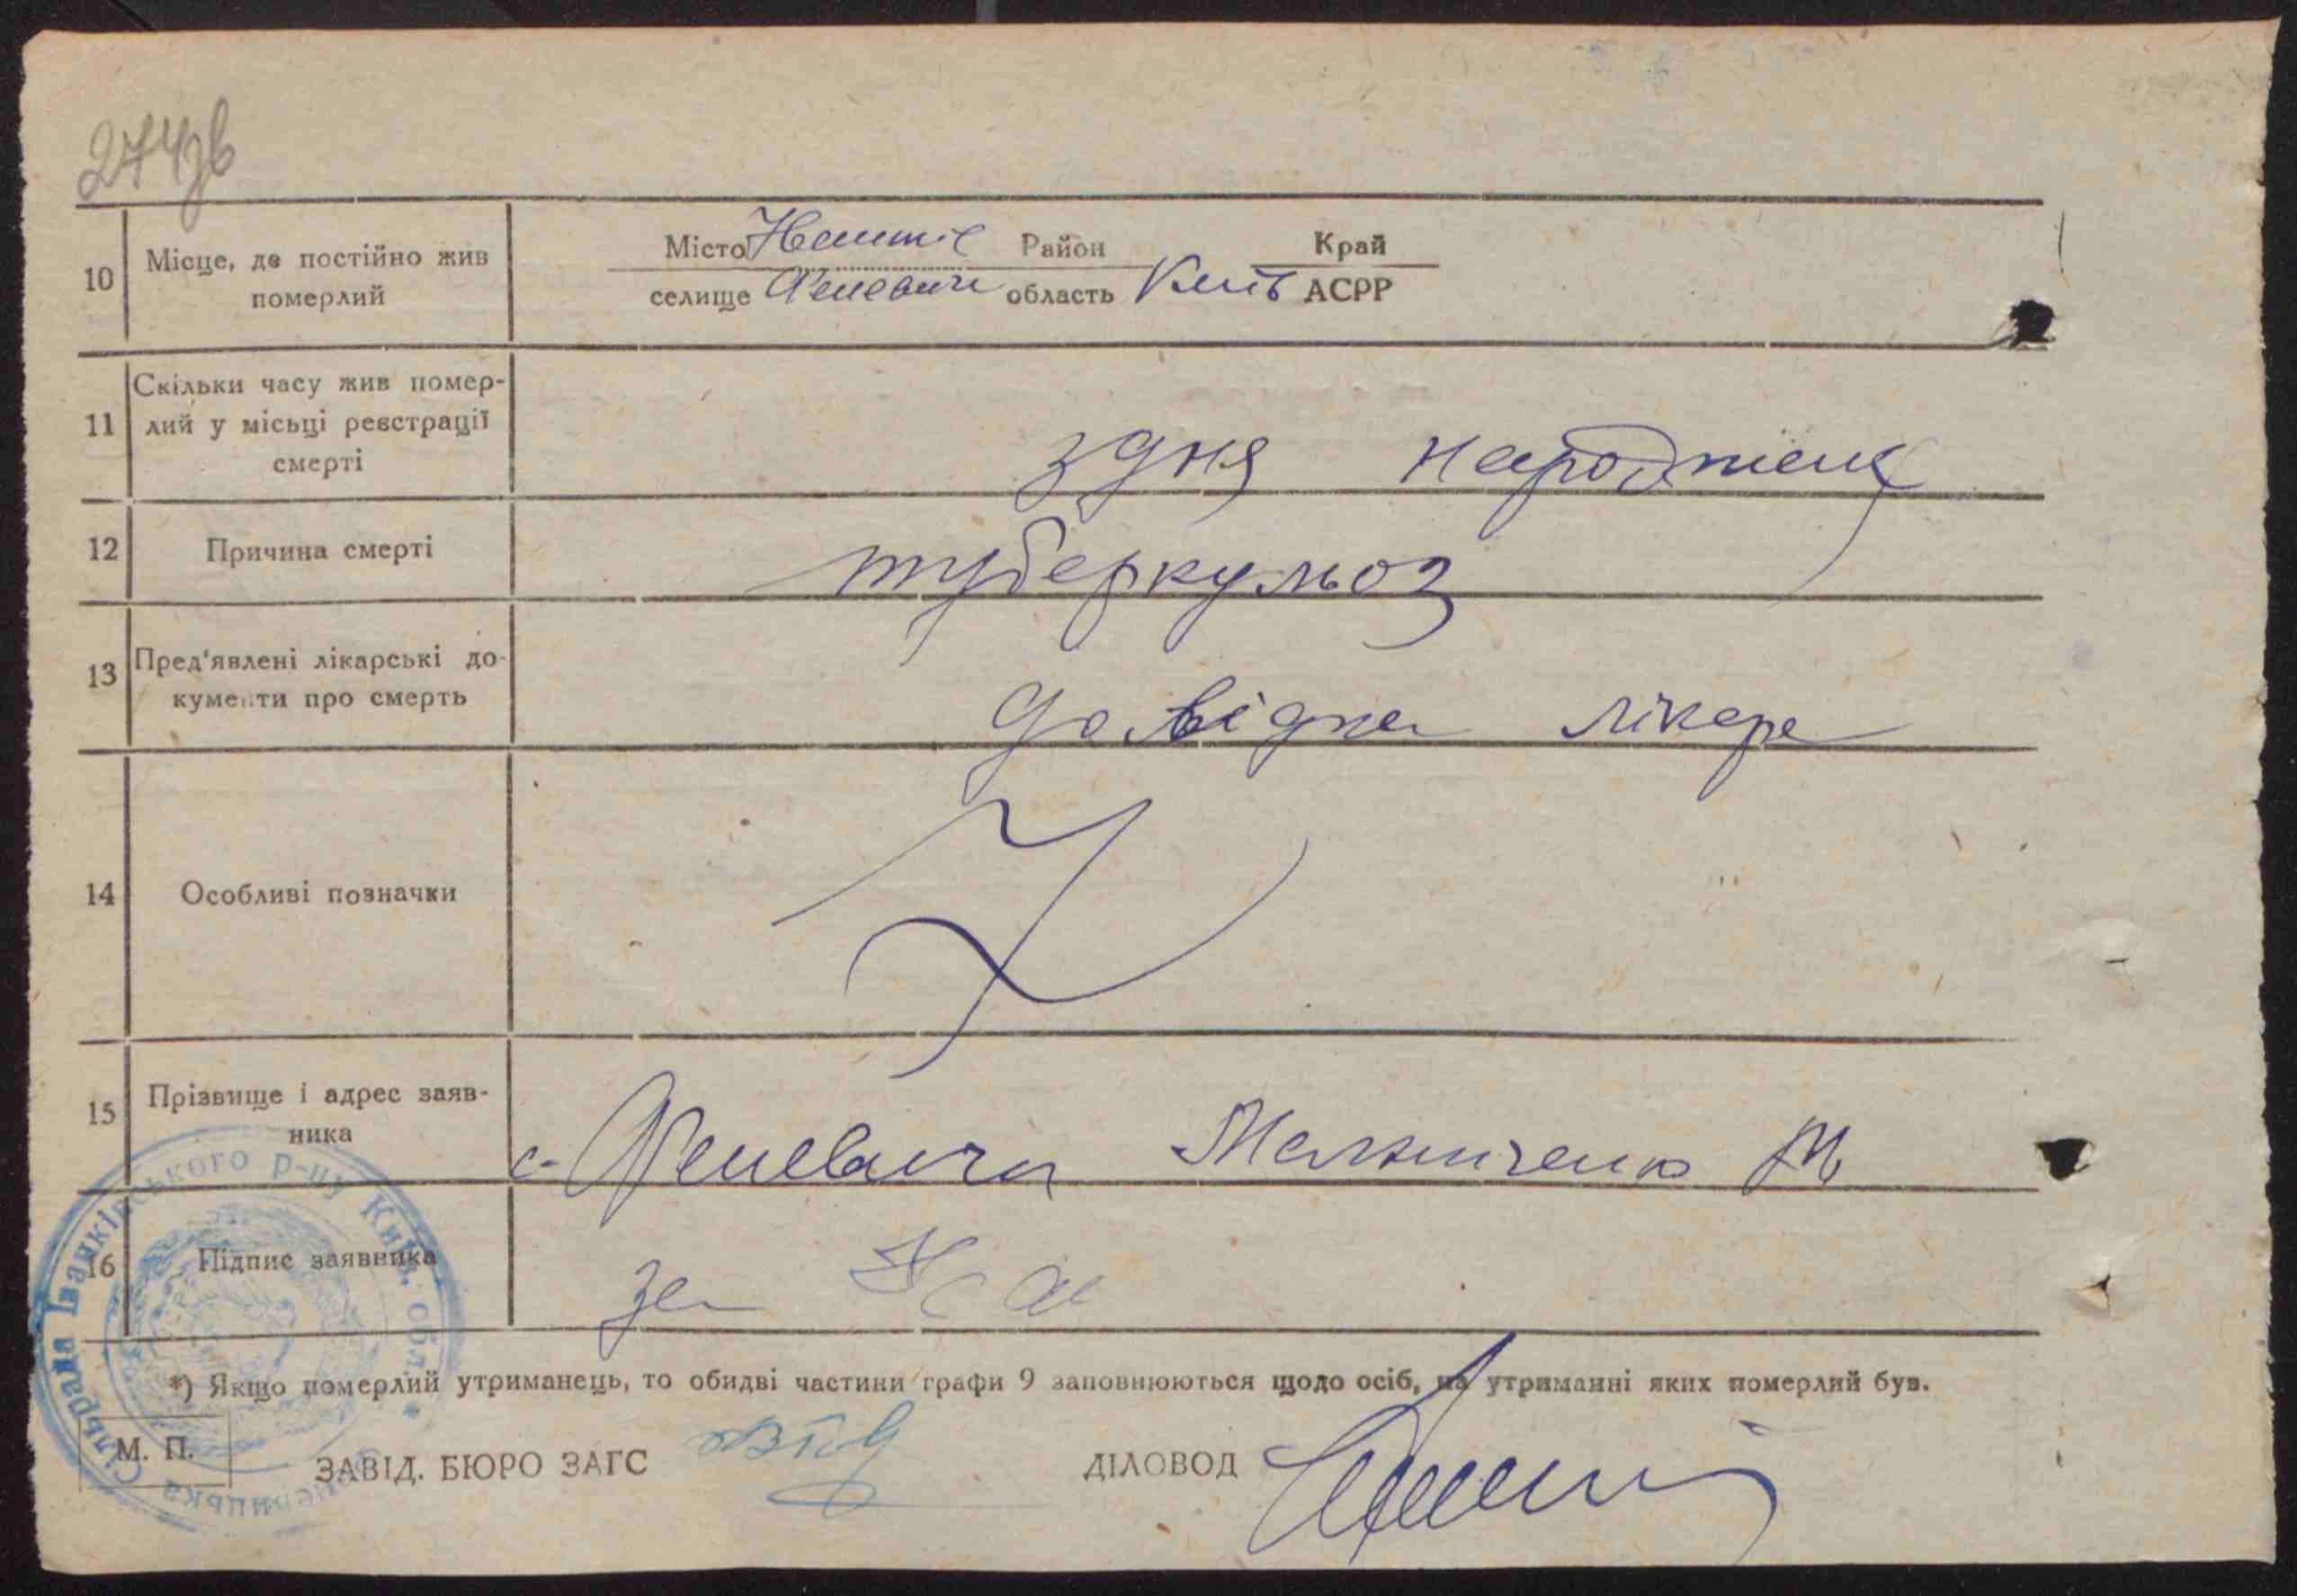 274зв
10 Місце, де постійно жив померлий
Місто Район Край
селище Феневичі область Київ АСРР
11 Скільки часу жив помер-
лий у місьці реєстрації
смерті
з дня народження
12 Причина смерті туберкульоз
13 Пред'явлені лікарські до-
кументи про смерть
довідка лікаря
14 Особливі позначки
15 Прізвище і адрес заяв-
ника
с. Феневичи Мельниченко М
16 Підпис заявника за
*) Якщо померлий утриманець, то обидві частини графи 9 заповнюються щодо осіб, на утриманні яких померлий був.
М. П. ЗАВІД. БЮРО ЗАГС ДІЛОВОД
Феневицька Сільрада Іванківського р-ну Київ. обл. *